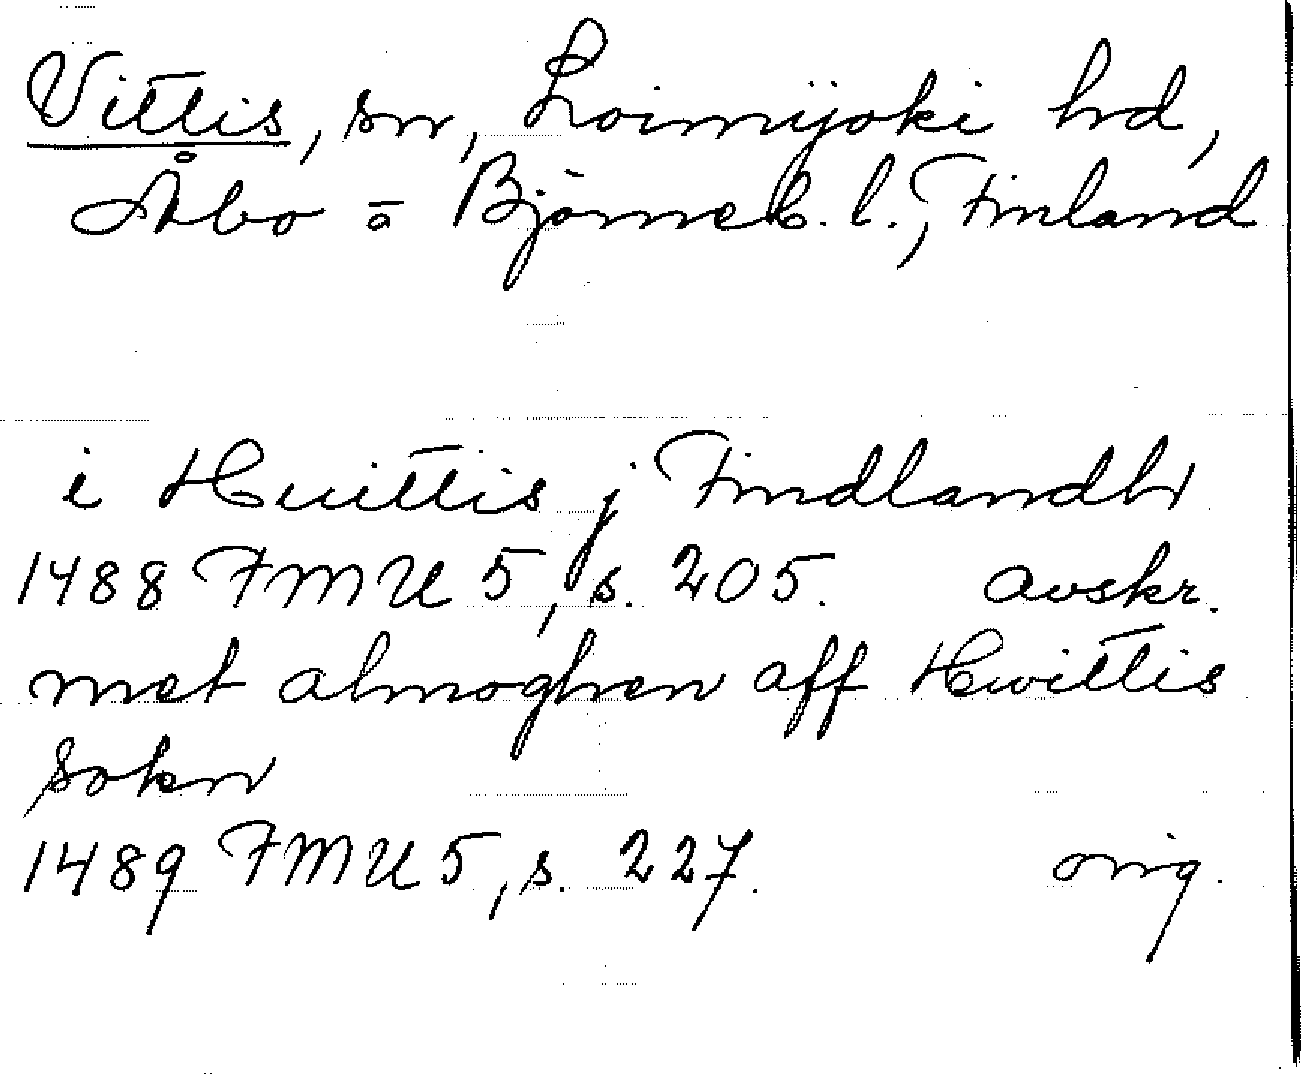 Vittis, sn, Loimijoki hd,
Åbo o Björneb. l., Finland
i Huittis j Findlandh
1488 FMU 5, s. 205. avskr.
met almoghen aff Hwittis
sokn
1489 FMU 5, s. 227. orig.